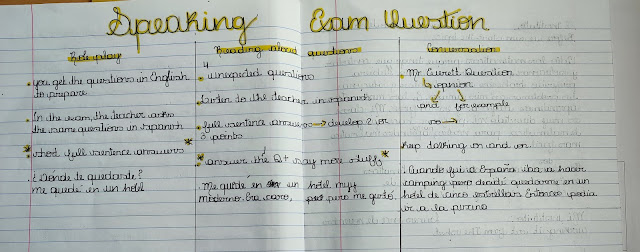 Speaking Exam Question
Role play
• you get the questions in English
to prepare
• In the exam, the teacher asks
the same questions in Spanish
• short full sentence answers
¿Dónde te quedaste?
me quedé in un hotel
Reading aloud questions
4
• unexpected questions
listen to the teacher in spanish
• full sentence answers → develop 2 or
3 points
• answer the Q + say more stuff
. Me quedé in un hotel muy
moderno. Era caro, pero me gustó.
Conversation
• Mr Everett Question
↳ opinion
and for example
so →
keep talking on and on
. Cuando fui a España iba a hacer
camping pero decidí quedarme en un
hotel de cinco estrellas. Entonces podía
ir a la piscina